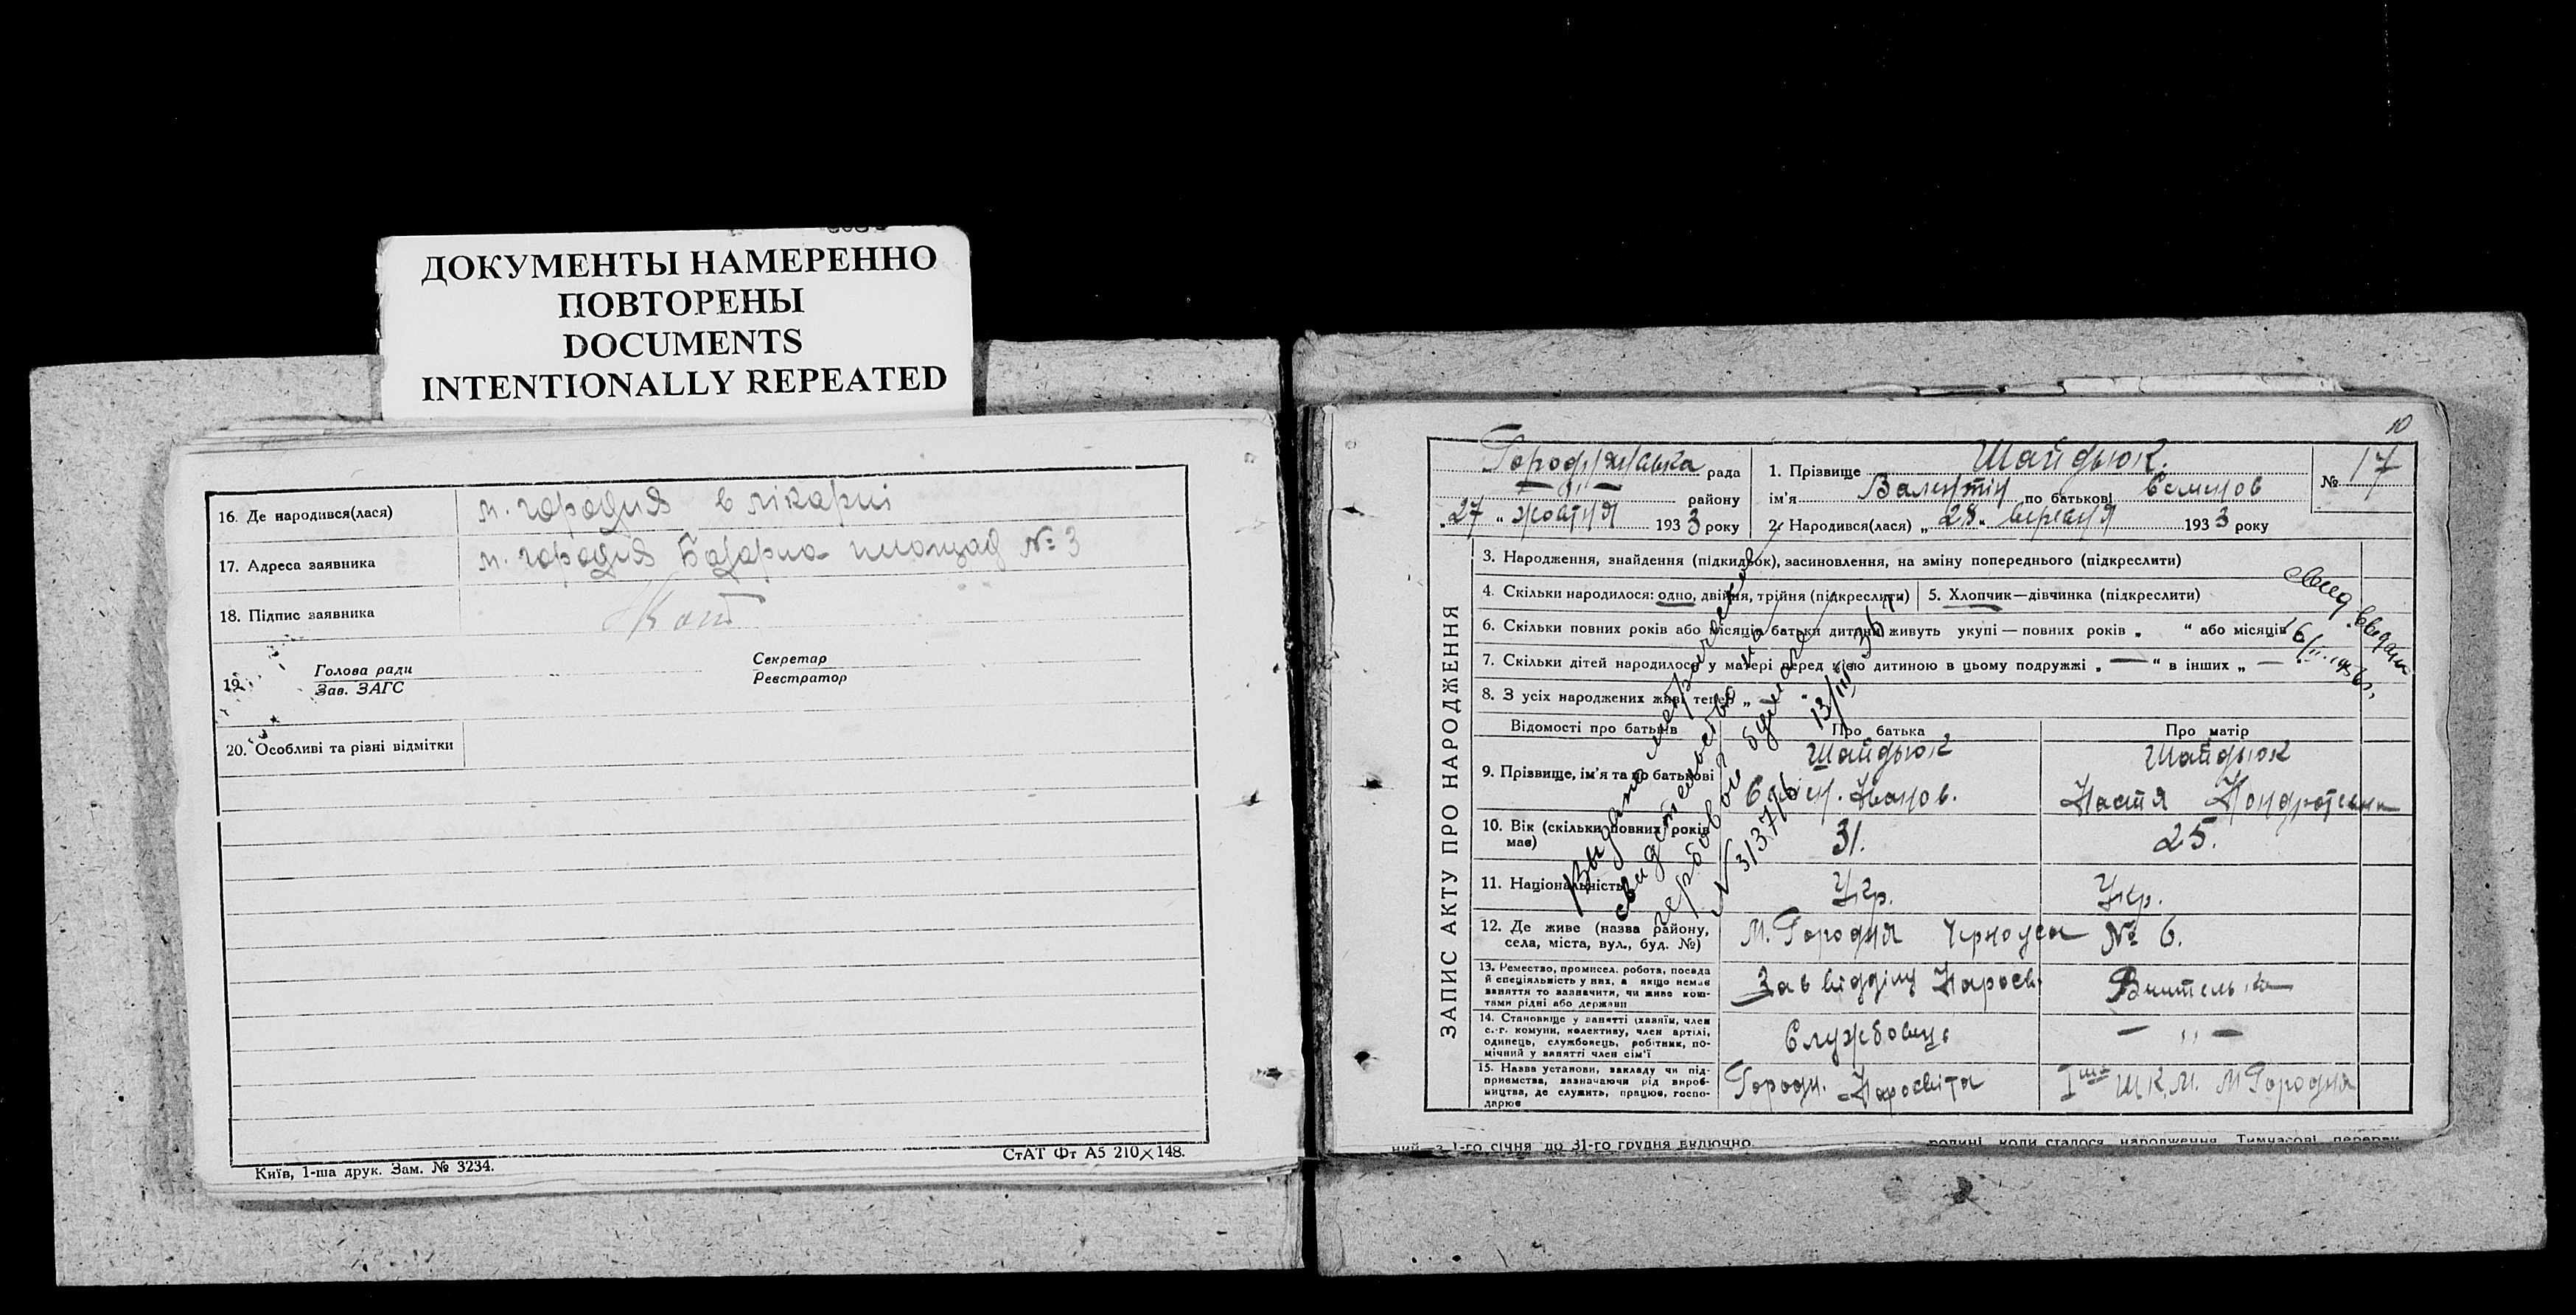 ДОКУМЕНТЫ НАМЕРЕННО
ПОВТОРЕНЫ
DOCUMENTS
INTENTIONALLY REPEATED
16. Де народився(лася) м. городня в лікарні
17. Адреса заявника м. городня Базарна площад № 3
18. Підпис заявника
19. Голова ради
Зав. ЗАГС
Секретар
Реєстратор
20. Особливі та різні відмітки
Київ, 1-ша друк. Зам. № 3234.
СтАТ Фт А5 210×148.
10
Городнянська рада
— „ — району
„27„ жовтня 1933 року
1. Прізвище Шайдюк.
ім'я Валентін по батькові Семенов
2. Народився(лася) „28„ вересня 1933 року
№ 17
ЗАПИС АКТУ ПРО НАРОДЖЕННЯ
3. Народження, знайдення (підкидьок), засиновлення, на зміну попереднього (підкреслити)
4. Скільки народилося: одно, двійня, трійня (підкреслити) 5. Хлопчик—дівчинка (підкреслити)
6. Скільки повних років або місяців батьки дитини живуть укупі — повних років „ “ або місяців
7. Скільки дітей народилося у матері перед цією дитиною в цьому подружжі „ — “ в інших „ —
8. З усіх народжених живі тепер „ —
Відомості про батьків Про батька Про матір
9. Прізвище, ім'я та по батькові Шайдюк Шайдюк
Іванов. Настя
10. Вік (скільки повних років 31. 25.
має)
11. Національність Укр. Укр.
12. Де живе (назва району, М. Городня Черноуса № 6.
села, міста, вул., буд. №)
13. Ремество, промисел, робота, посада Зав відділу Наросв. Вчителька
й спеціяльність у них, а якщо немає
заняття то зазначити, чи живе кош-
тами рідні або держави
14. Становище у занятті (хазяїн, член Службовець — „ —
с.-г. комуни, колективу, член артілі,
одинець, службовець, робітник, по-
мічний у занятті член сім'ї
15. Назва установи, закладу чи під- Городн. Наросвіта Іша ШКМ. М Городня
приємства, зазначаючи рід вироб-
ництва, де служить, працює, госпо-
дарює
Выдано метрическое
свидетельство на
гербовой бумаге
N 313776 13/III 36
свид. выдано
ний з 1-го січня до 31-го грудня включно.
родині коли сталося народження Тимчасові